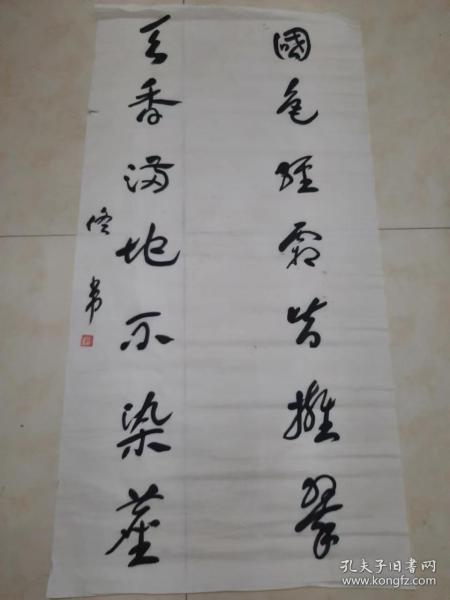 國色經霜皆擁翠
天香滿地不染塵
孔夫子旧书网
www.kongfz.com